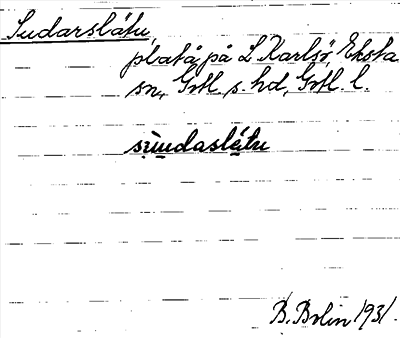 Sudarslátu,
platå på L Karlsö, Eksta
sn, Gotl. s. hd, Gotl. l.
sùudaslátu
B. Bolin 1931.